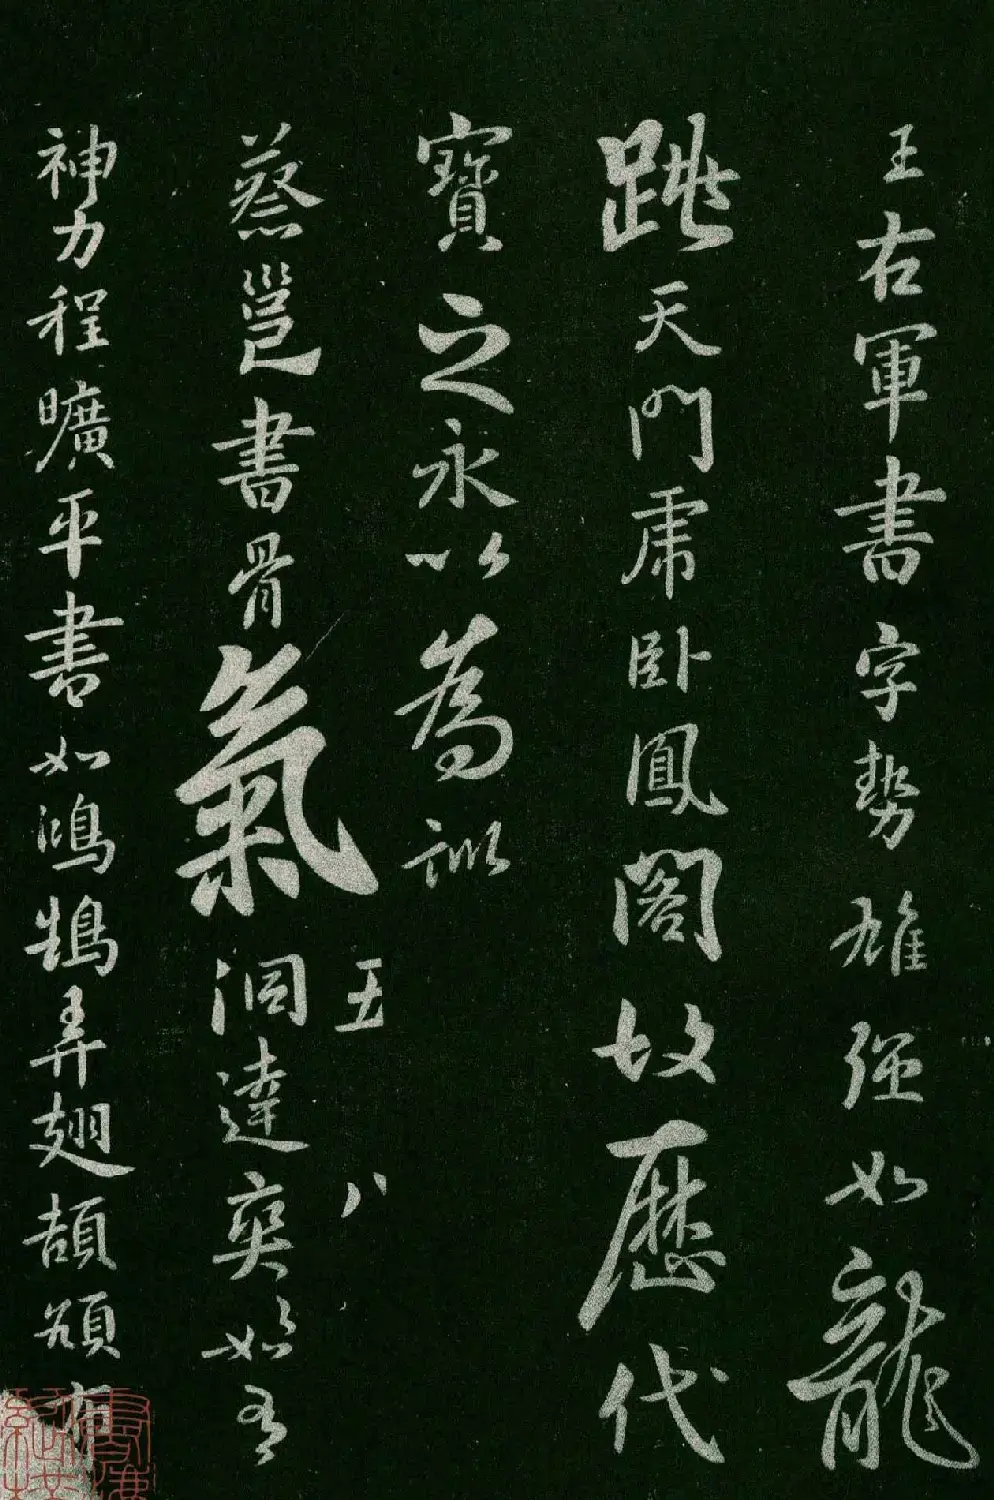 王右軍書字勢雄強如龍
跳天門虎卧鳳閣故歷代
寶之永以為訓
五
八
蔡邕書骨氣洞達爽如有
神力程曠平書如鴻鵠弄翅頡頏